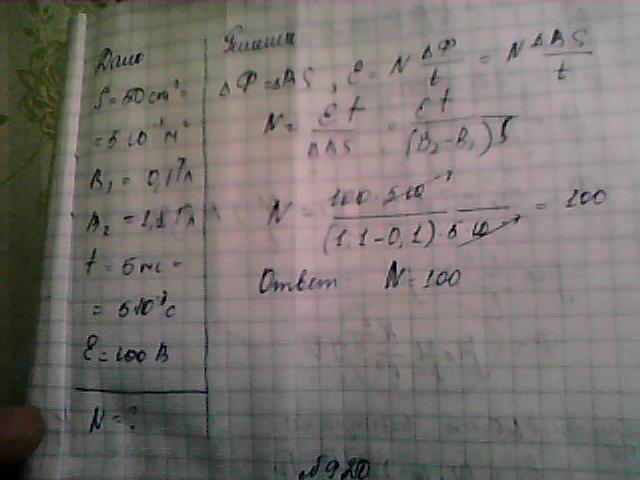 Дано
S = 50 cm² =
= 5 10⁻³ м²
B₁ = 0,1 Тл
B₂ = 1,1 Тл
t = 5 мс =
= 5 10⁻³ с
Ɛ = 100 В
N = ?
Решение
ΔФ = ΔBS, Ɛ = N ΔФ/t = N ΔBS/t
N = Ɛt/ΔBS = Ɛt/(B₂-B₁)S
N = 100 · 5 10⁻³/(1,1-0,1) 5 10⁻³ = 100
Ответ N = 100
№920